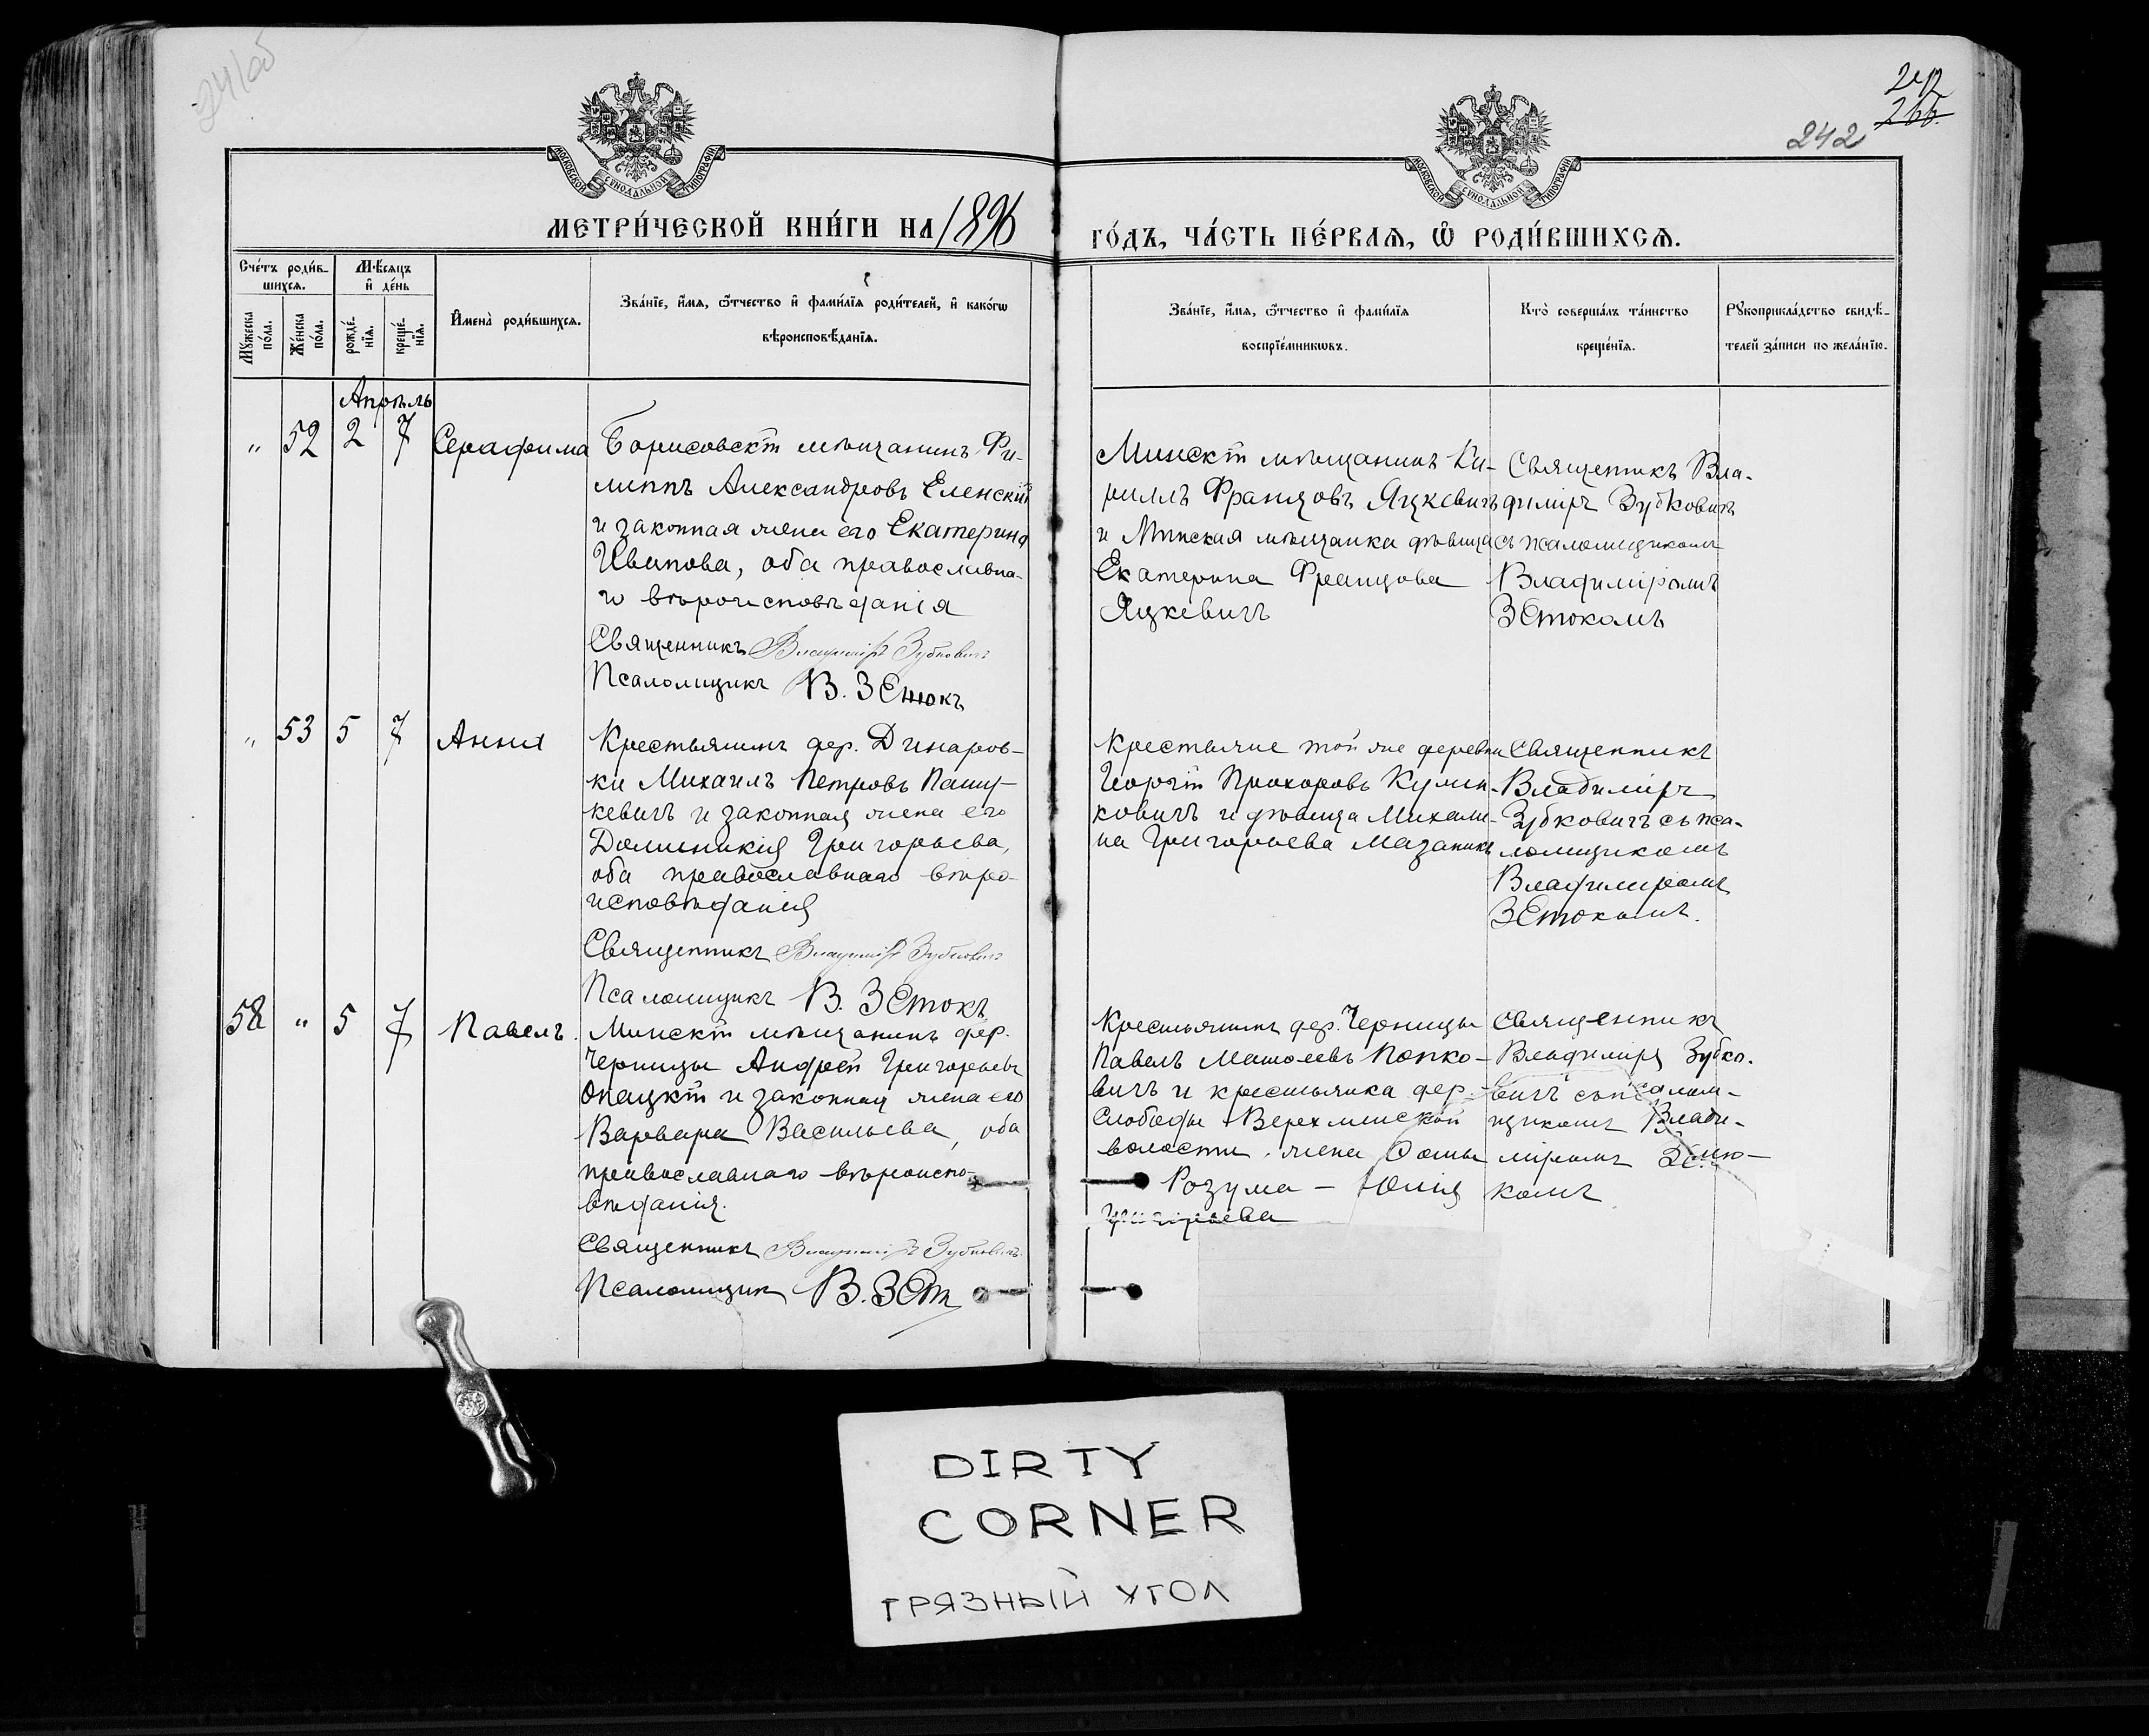 242
266.
242
МОСКОВСКОЙ СѴНОДАЛЬНОЙ ТИПОГРАФІИ
МОСКОВСКОЙ СѴНОДАЛЬНОЙ ТИПОГРАФІИ
МЕТРИ́ЧЕСКОЙ КНИ́ГИ НА 1896
ГО́ДЪ, ЧА́СТЬ ПЕ́РВАЯ, Ѡ҆ РОДИ́ВШИХСЯ.
Сче́тъ роди́в-
шихся.
Мѣ́сяцъ
и҆ де́нь
Му́жеска
по́ла.
Же́нска
по́ла.
рожде́-
нїя.
креще́-
нїя.
И҆мена̀ роди́вшихся.
Зва́нїе, и҆́мя, ѻ҆́тчество и҆ фами́лїя роди́телей, и҆ како́гѡ
вѣроисповѣ́данїя.
Зва́нїе, и҆́мя, ѻ҆́тчество и҆ фами́лїя
воспрїе́мникѡвъ.
Кто̀ соверша́лъ та́инство
креще́нїя.
Рꙋкоприкла́дство свидѣ́-
телей за́писи по жела́нїю.
Апрѣль
" 52 2 7 Серафима
Борисовскій мѣщанинъ Фи-
липпъ Александровъ Еленскій
и законная жена его Екатерина
Иванова, оба православна-
го вѣроисповѣданія
Священникъ Владиміръ Зубковичъ
Псаломщикъ В. ЗЕнюкъ
Минскій мѣщанинъ Ки-
риллъ Францовъ Яцкевичъ
и Минская мѣщанка дѣвица
Екатерина Францова
Яцкевичъ
Священникъ Вла-
димiръ Зубковичъ
съ псаломщикомъ
Владиміромъ
"  53 5 7 Анна
Крестьянинъ дер. Динаров-
ки Михаилъ Петровъ Пашу-
кевичъ и законная жена его
Доминикія Григорьева,
оба православнаго вѣро-
исповѣданія
Священникъ Владиміръ Зубковичъ
Псаломщикъ В.
Крестьяне той же деревни
Георгій Прохоровъ Кулин-
ковичъ и дѣвица Михали-
на Григорьева Мазаникъ
Священникъ
Владиміръ
Зубковичъ съ пса-
ломщикомъ
Владиміромъ
58 " 5 7 Павелъ.
Минскій мѣщанинъ дер.
Черницы Андрей Григорьевъ
Опацкій и законная жена его
Варвара Васильева, оба
православнаго вѣроиспо-
вѣданія.
Священникъ Владиміръ Зубковичъ
Псаломщикъ В.
Крестьянинъ дер. Черницы
Павелъ Матѳеевъ Попко-
вичъ и крестьянка дер.
Слободы Верхменской
волости жена Ѳомы
Розума - Юлія
Григорьева
Священникъ
Владиміръ Зубко-
вичъ съ псалом-
щикомъ Влади-
міромъ
комъ
DIRTY
CORNER
ГРЯЗНЫЙ УГОЛ